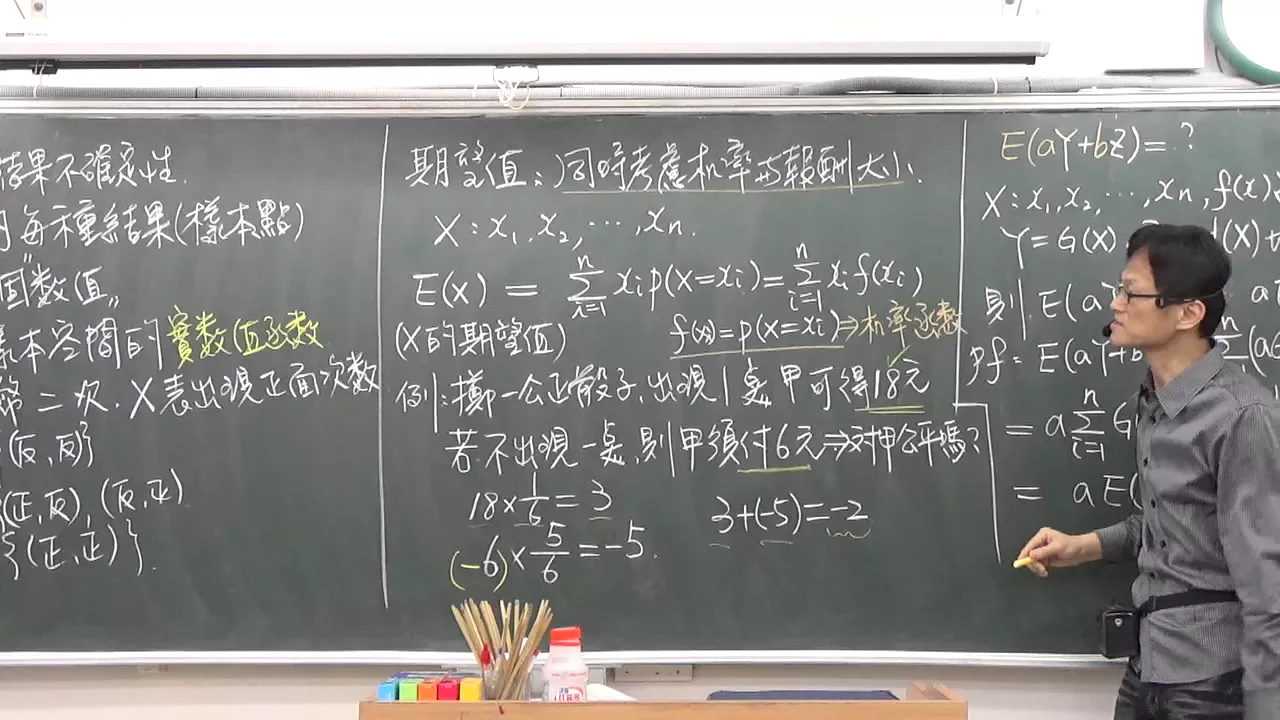 結果不確定性.
每種結果(樣本點)
數值"
樣本空間的實數值函數
第二次. X表出現正面次數
(反,反)}
(正,反), (反,正)
{(正,正)}.
期望值:同時考慮机率与報酬大小.
X : x₁, x₂, ⋯, xₙ.
E(X) = \sum_{i=1}^{n} xᵢ p(X=xᵢ) = \sum_{i=1}^{n} xᵢ f(xᵢ)
(X的期望值)
f(xᵢ) = p(X=xᵢ) ⇒ 机率函數
例:擲一公正骰子,出現1點甲可得18元
若不出現一點,則甲須付6元⇒对甲公平嗎?
18 × \frac{1}{6} = 3
(-6) × \frac{5}{6} = -5.
3+(-5)=-2
E(aY+bZ)= ?
X : x₁, x₂, ⋯, xₙ, f(x)
Y=G(X)
(X)
則 E(aY
pf : E(aY+b
= a \sum_{i=1}^{n} G(
= aE(